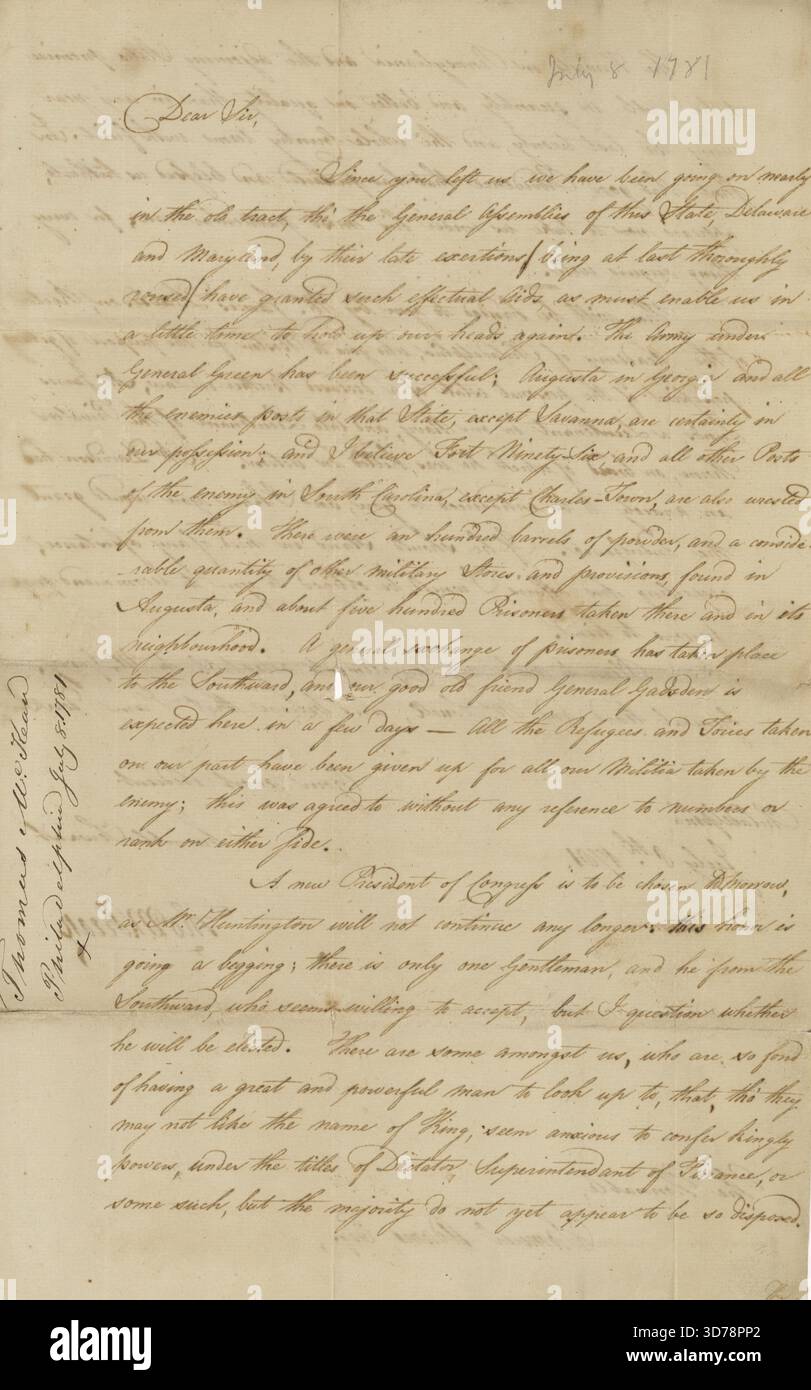 July 8 1781
Dear Sir,
Since you left us we have been going on nearly
in the old tract, tho' the General Assemblies of this State, Delaware
and Maryland, by their late exertions (being at last thoroughly
roused) have granted such effectual Aids, as must enable us in
a little time to hold up our heads again. The Army under
General Green has been successful; Augusta in Georgia and all
the enemies posts in that State, except Savanna, are certainly in
our possession; and I believe Fort Ninety-Six and all other Posts
of the enemy in South Carolina, except Charles-Town, are also wrested
from them. There were an hundred barrels of powder, and a conside-
rable quantity of other military Stores and provisions, found in
Augusta, and about five hundred Prisoners taken there and in its
neighbourhood. A general exchange of prisoners has taken place
to the Southward, and our good old friend General Gadsden is
expected here in a few days — All the Refugees and Tories taken
on our part have been given up for all our Militia taken by the
enemy; this was agreed to without any reference to numbers or
rank on either side.
A new President of Congress is to be chosen Tomorrow,
as Mr. Huntington will not continue any longer. this honor is
going a begging; there is only one Gentleman, and he from the
Southward, who seems willing to accept, but I question whether
he will be elected. There are some amongst us, who are so fond
of having a great and powerful man to look up to, that, tho' they
may not like the name of King, seem anxious to confer kingly
powers, under the titles of Dictator Superintendant of Finance, or
some such, but the majority do not yet appear to be so disposed.
Thomas Mc.Kean
Philadelphia July 8. 1781
a
alamy
Image ID: 3D78PP2
www.alamy.com